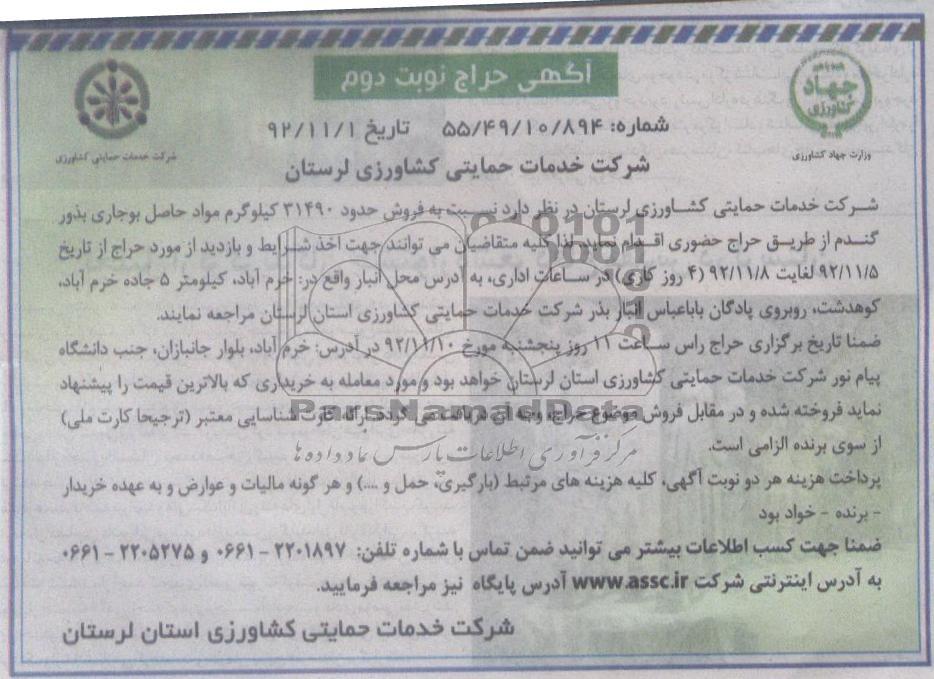 آگهی حراج نوبت دوم
جهاد کشاورزی
وزارت جهاد کشاورزی
شرکت خدمات حمایتی کشاورزی
شماره: ۵۵/۴۹/۱۰/۸۹۴ تاریخ ۹۲/۱۱/۱
شرکت خدمات حمایتی کشاورزی لرستان
شرکت خدمات حمایتی کشاورزی لرستان در نظر دارد نسبت به فروش حدود ۳۱۴۹۰ کیلوگرم مواد حاصل بوجاری بذور
گندم از طریق حراج حضوری اقدام نماید، لذا کلیه متقاضیان می توانند جهت اخذ شرایط و بازدید از مورد حراج از تاریخ
۹۲/۱۱/۵ لغایت ۹۲/۱۱/۸ (۴ روز کاری) در ساعات اداری، به آدرس محل انبار واقع در: خرم آباد، کیلومتر ۵ جاده خرم آباد،
کوهدشت، روبروی پادگان باباعباس انبار بذر شرکت خدمات حمایتی کشاورزی استان لرستان مراجعه نمایند.
ضمنا تاریخ برگزاری حراج راس ساعت ۱۱ روز پنجشنبه مورخ ۹۲/۱۱/۱۰ در آدرس: خرم آباد، بلوار جانبازان، جنب دانشگاه
پیام نور شرکت خدمات حمایتی کشاورزی استان لرستان خواهد بود و مورد معامله به خریداری که بالاترین قیمت را پیشنهاد
نماید فروخته شده و در مقابل فروش موضوع حراج، وجه آن دریافت می گردد. ارائه کارت شناسایی معتبر (ترجیحا کارت ملی)
از سوی برنده الزامی است.
پرداخت هزینه هر دو نوبت آگهی، کلیه هزینه های مرتبط (بارگیری، حمل و ....) و هر گونه مالیات و عوارض و به عهده خریدار
- برنده - خواد بود
ضمنا جهت کسب اطلاعات بیشتر می توانید ضمن تماس با شماره تلفن: ۲۲۰۱۸۹۷ - ۰۶۶۱ و ۲۲۰۵۲۷۵ - ۰۶۶۱
به آدرس اینترنتی شرکت www.assc.ir آدرس پایگاه نیز مراجعه فرمایید.
شرکت خدمات حمایتی کشاورزی استان لرستان
ParsNamadData
مرکز فرآوری اطلاعات پارس نماد داده ها